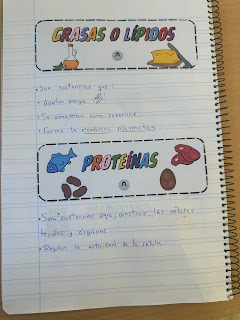 GRASAS O LÍPIDOS
• Son sustancias que:
• Aportan energía
• Se almacenan como reservas
• Forma la membrana plasmática
PROTEÍNAS
• Son sustancias para construir las células,
tejidos y órganos.
• Regulan la actividad de la célula.